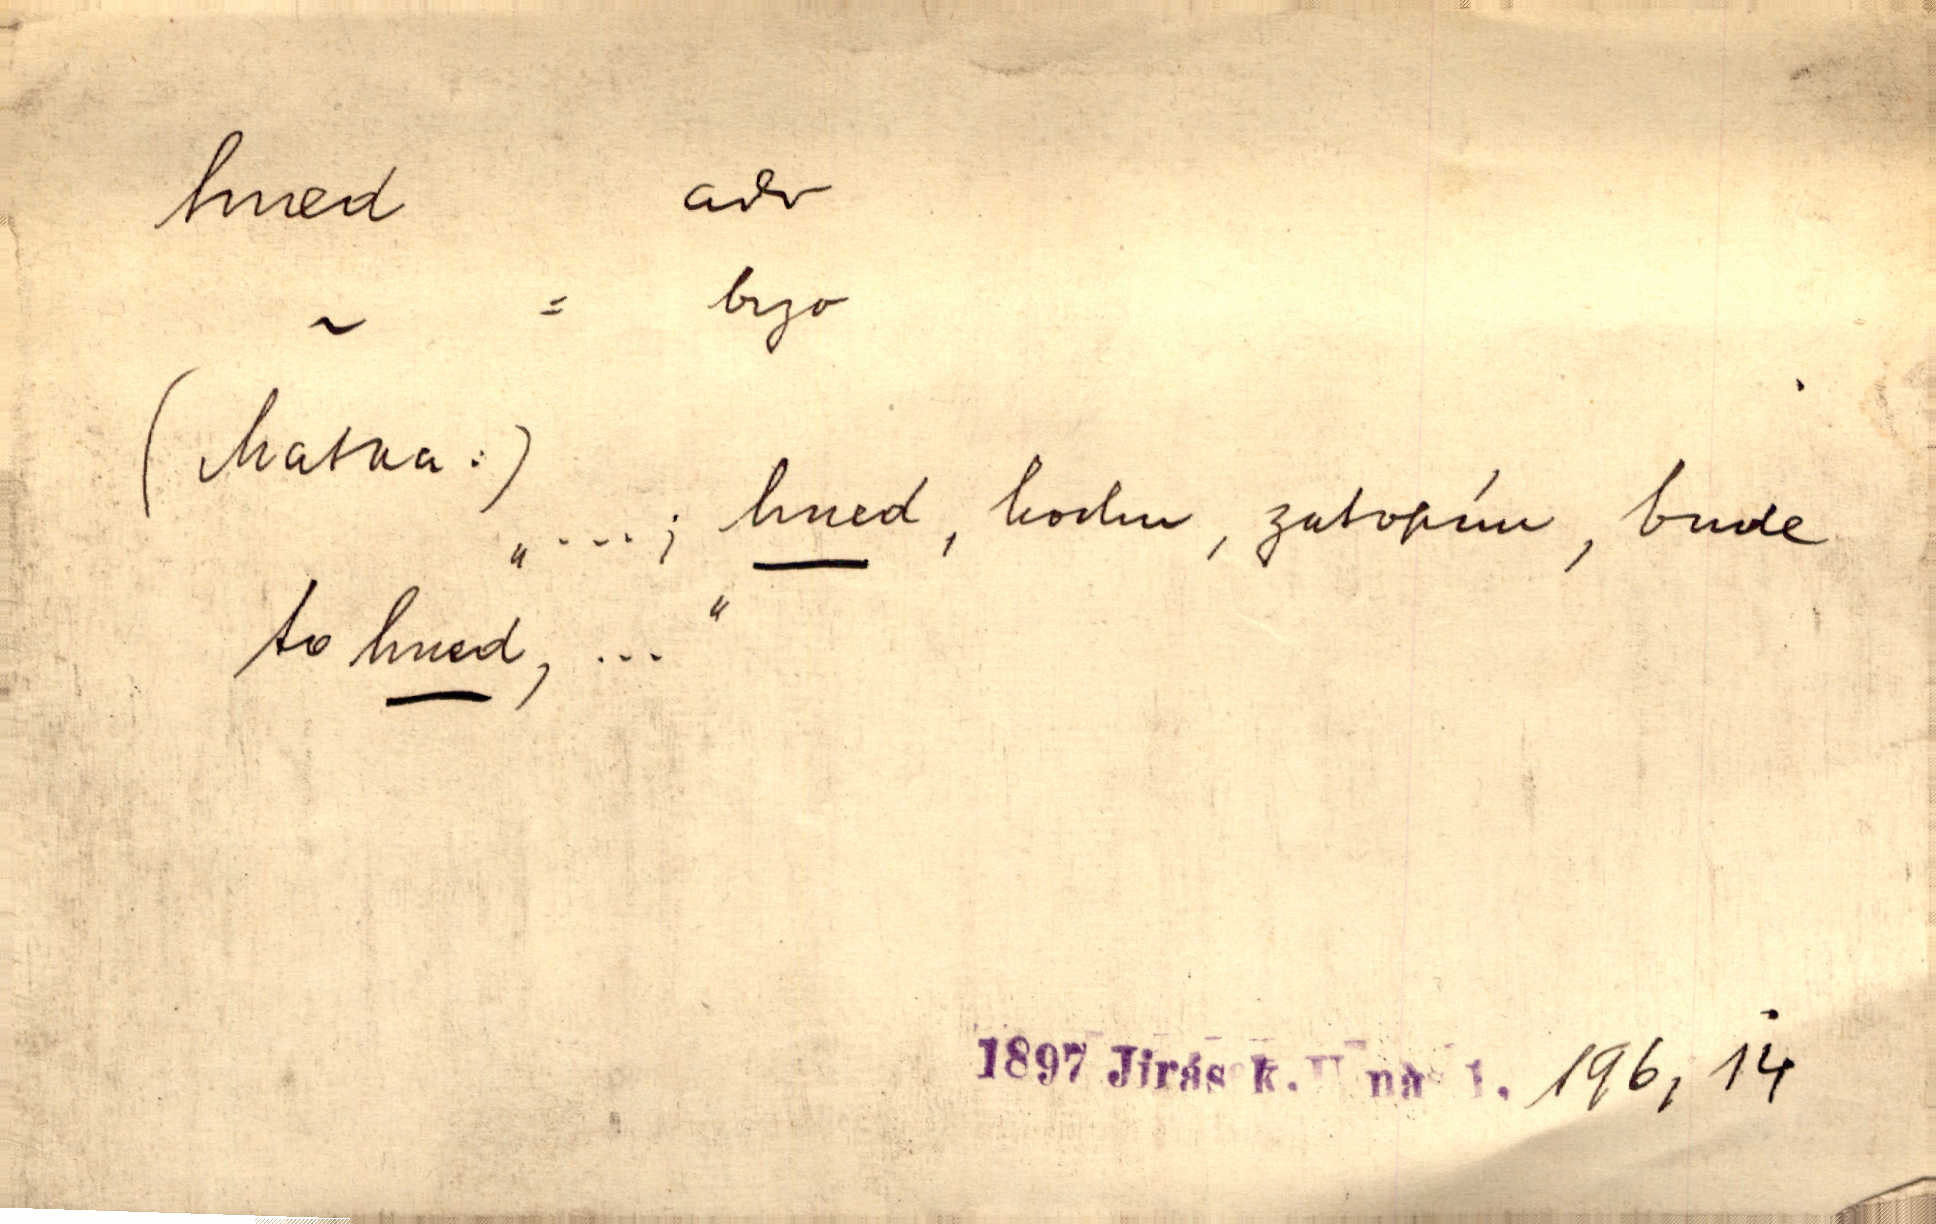 hned adv
~ = brzo
(Matka:)
„...; hned, hochu, zatopím, bude
to hned, ..."
1897 Jirásek. U nás 1. 196, 14